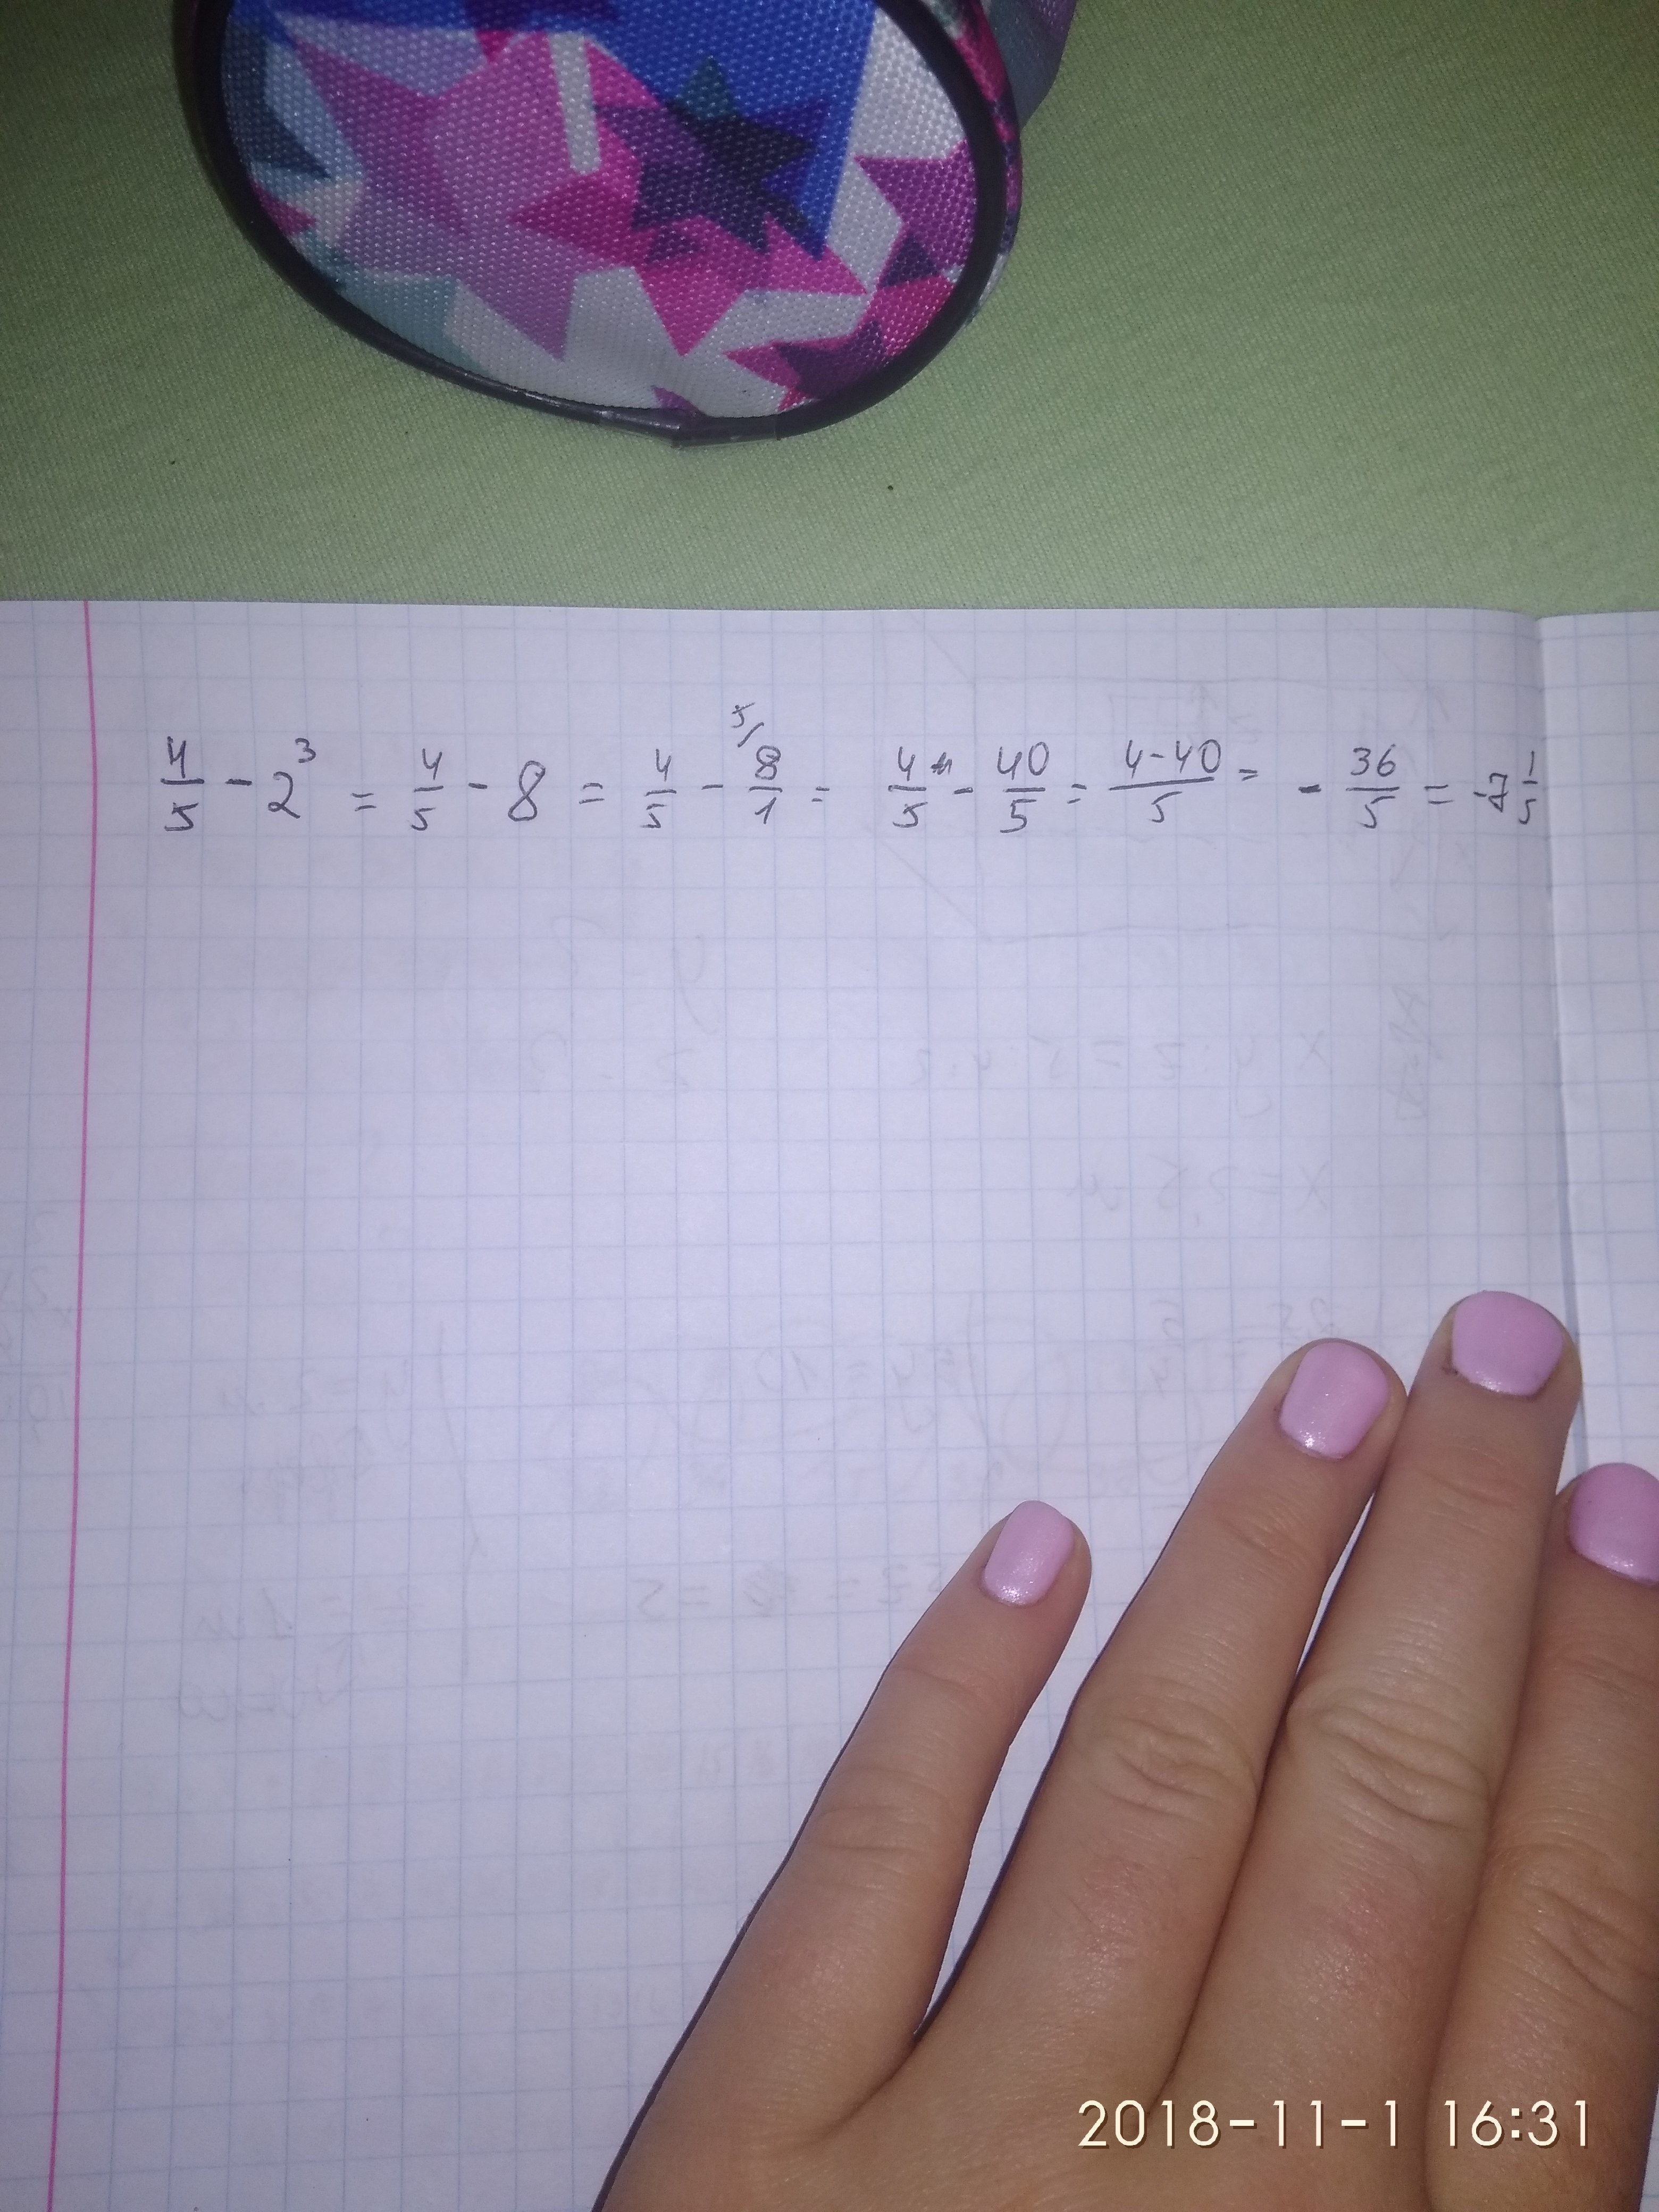 4/5 - 2³ = 4/5 - 8 = 4/5 - 5/ 8/1 = 4/5 - 40/5 = 4-40/5 = - 36/5 = -7 1/5
2018-11-1 16:31